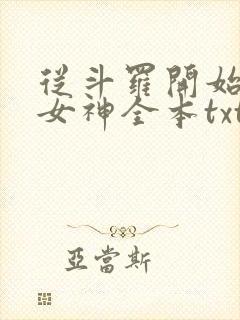 從斗羅開始
女神全本txt
亞當斯